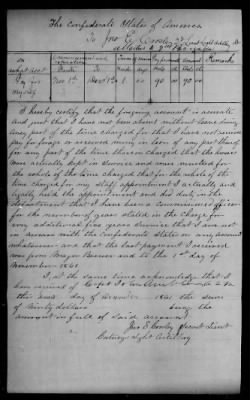 The Confederate States of America
To Jno. E. Cooley 2d Lieut
On what acct. Commencement and expiration Term of service Pay per month Amount Remarks
Pay for Myself Nov 1st 90 00 90 00
I hereby certify that the foregoing account is accurate
and just that I have not been absent without leave during
any part of the time charged for that I have not received
pay forage or received money in lieu of any part thereof
for any part of the time therein charged that the horses
were actually kept in service and were mustered for
the whole of the time charged that for the whole of the
time charged for my staff appointment I actually and
legally held the appointment and did duty in the
department that I have been a commissioned officer
for the number of years stated in the charge for
every additional five years service that I am not
in arrears with the Confederate States on any account
whatsoever and that the last payment I received
was from Major Beemer and to the 1st day of
November 1861.
I, at the same time acknowledge that I
have received of Capt
this 2nd day of December 1861 the sum
of Ninety dollars being the
amount in full of said account
Jno E Cooley Second Lieut
Light Artillery